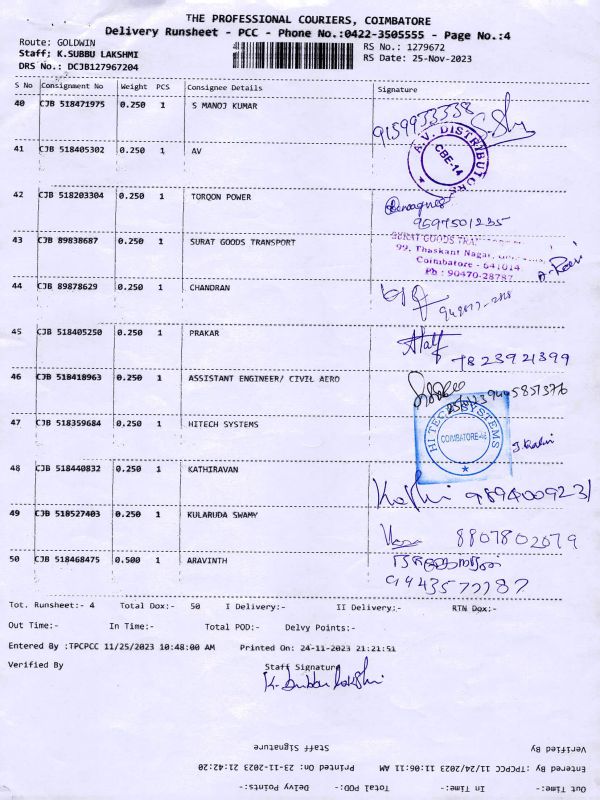 THE PROFESSIONAL COURIERS, COIMBATORE
Delivery Runsheet - PCC - Phone No.:0422-3505555 - Page No.:4
Route: GOLDWIN
RS No.: 1279672
Staff; K.SUBBU LAKSHMI
RS Date: 25-Nov-2023
DRS No.: DCJB127967204
S No Consignment No Weight PCS Consignee Details Signature
40 CJB 518471975 0.250 1 S MANOJ KUMAR
9159933338
41 CJB 518405302 0.250 1 AV
A.V. DISTRIBUTORS
CBE-14
42 CJB 518203304 0.250 1 TORQON POWER
9597501235
43 CJB 89838687 0.250 1 SURAT GOODS TRANSPORT
SURAT GOODS
99, Thaskant Nagar,
Coimbatore - 641014
Ph : 90470-28787
44 CJB 89878629 0.250 1 CHANDRAN
45 CJB 518405250 0.250 1 PRAKAR
7823921399
46 CJB 518418963 0.250 1 ASSISTANT ENGINEER/ CIVIL AERO
47 CJB 518359684 0.250 1 HITECH SYSTEMS
HI TECH SYSTEMS
COIMBATORE-48
48 CJB 518440832 0.250 1 KATHIRAVAN
9894009231
49 CJB 518527403 0.250 1 KULARUDA SWAMY
8807802079
50 CJB 518468475 0.500 1 ARAVINTH
9443577787
Tot. Runsheet:- 4 Total Dox:- 50 I Delivery:- II Delivery:- RTN Dox:-
Out Time:- In Time:- Total POD:- Delvy Points:-
Entered By :TPCPCC 11/25/2023 10:48:00 AM Printed On: 24-11-2023 21:21:51
Verified By Staff Signature
K. Subbu Lakshmi
Verified By Staff Signature
Entered By :TPCPCC 11/24/2023 11:06:11 AM Printed On: 23-11-2023 21:42:20
Out Time:- In Time:- Total POD:- Delvy Points:-